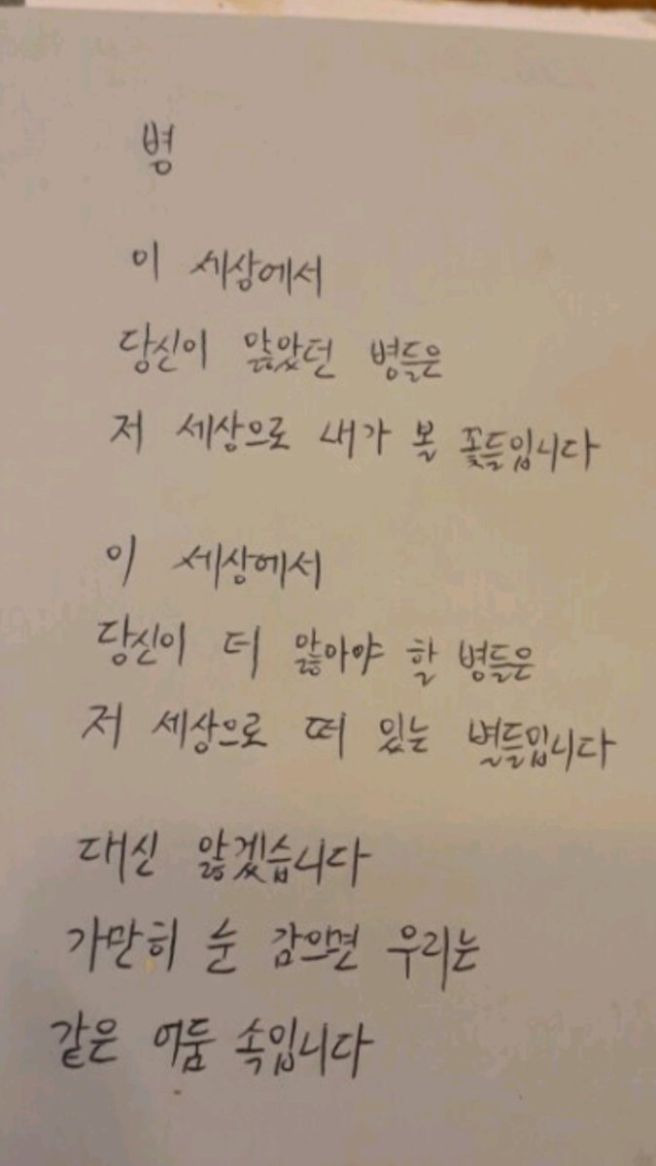 병
이 세상에서
당신이 앓았던 병들은
저 세상으로 내가 볼 꽃들입니다
이 세상에서
당신이 더 앓아야 할 병들은
저 세상으로 떠 있는 별들입니다
대신 앓겠습니다
가만히 눈 감으면 우리는
같은 어둠 속입니다